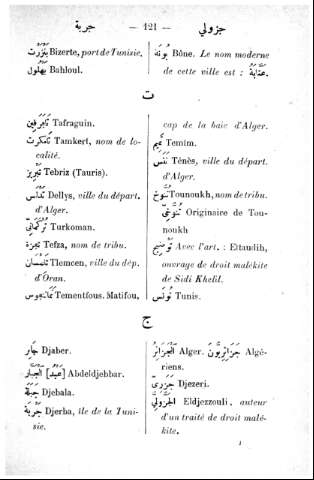 جربة — 421 — جزولي
بنزرت Bizerte, port de Tunisie.
بهلول Bahloul.
بونة Bône. Le nom moderne
de cette ville est : عنّابة.
ت
تافرقين Tafraguin.
تامكرت Tamkert, nom de lo-
calité.
تبريز Tebriz (Tauris).
تدلس Dellys, ville du départ.
d'Alger.
تركماني Turkoman.
تفزة Tefza, nom de tribu.
تلمسان Tlemcen, ville du dép.
d'Oran.
Tementfous. Matifou,
cap de la baie d'Alger.
تميم Temim.
تنس Ténès, ville du départ.
d'Alger.
تنوخ Tounoukh, nom de tribu.
تنوخي Originaire de Tou-
noukh
توضيح Avec l'art. : Ettaudih,
ouvrage de droit malékite
de Sidi Khelil.
تونس Tunis.
ج
جابر Djaber.
[عبد] الجبّار Abdeldjebbar.
جبلة Djebala.
جربة Djerba, île de la Tuni-
sie.
الجزائر Alger. جزائريون Algé-
riens.
جزري Djezeri.
الجزولي Eldjezzouli, auteur
d'un traité de droit malé-
kite.